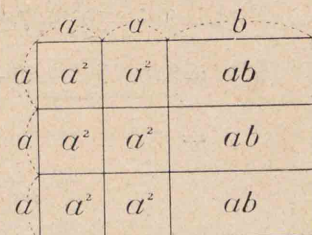 a a b
a a² a² ab
a a² a² ab
a a² a² ab